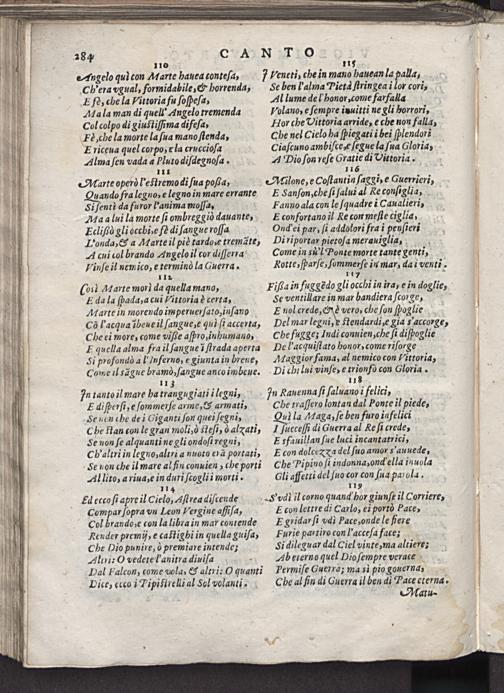 284
CANTO
110
Angelo quì con Marte hauea contesa,
Ch'era vgual, formidabile, & horrenda,
E fè, che la Vittoria fu sospesa,
Ma la man di quell' Angelo tremenda
Col colpo di giustissima difesa,
Fè, che la morte la sua mano stenda,
E riceua quel corpo, e la crucciosa
Alma sen vada a Pluto disdegnosa.
111
Marte operò l'estremo di sua possa,
Quando fra legno, e legno in mare errante
Si sentì da furor l'anima mossa,
Ma a lui la morte si ombreggiò dauante,
Eclißò gli occhi, e sè di sangue rossa
L'onda, & a Marte il piè tardo, e tremāte,
A cui col brando Angelo il cor disserra
Vinse il nemico, e terminò la Guerra.
112
Così Marte morì da quella mano,
E da la spada, a cui Vittoria è certa,
Marte in morendo imperuersato, insano
Cō l'acqua ībeue il sangue, e quì si accerta,
Che ei more, come visse aspro, inhumano,
E quella alma fra il sangue ī strada aperta
Si profondò a l'Inferno, e giunta in breue,
Come il sāgue bramò, sangue anco imbeue.
113
In tanto il mare ha trangugiati i legni,
E dispersi, e sommerse arme, & armati,
Se non che de i Giganti son quei segni,
Che stan con le gran moli, ò stesi, ò alzati,
Se non se alquanti ne gli ondosi regni,
Ch'altri in legno, altri a nuoto erā portati,
Se non che il mare al fin conuien, che porti
Al lito, a riua, e in duri scogli i morti.
114
Ed ecco si apre il Cielo, Astrea discende
Compar sopra vn Leon Vergine assisa,
Col brando, e con la libra in mar contende
Render premij, e castighi in quella guisa,
Che Dio punire, ò premiare intende;
Altri: O vedete l'anitra diuisa
Dal Falcon, come vola, & altri: O quanti
Dice, ecco i Pipistrelli al Sol volanti.
115
I Veneti, che in mano hauean la palla,
Se ben l'alma Pietà stringea i lor cori,
Al lume de l'honor, come farfalla
Volano, e sempre inuitti ne gli horrori,
Hor che Vittoria arride, e che non falla,
Che nel Cielo ha spiegati i bei splendori
Ciascuno ambisce, e segue la sua Gloria,
A Dio son rese Gratie di Vittoria.
116
Milone, e Costanti in saggi, e Guerrieri,
E Sanson, che si salui al Re consiglia,
Fanno ala con le squadre i Caualieri,
E confortano il Re con meste ciglia,
Ond'ei par, si addolori fra i pensieri
Di riportar pietosa merauiglia,
Come in sù'l Ponte morte tante genti,
Rotte, sparse, sommerse in mar, da i venti.
117
Fißa in fuggēdo gli occhi in ira, e in doglie,
Se ventillare in mar bandiera scorge,
E nol crede, & è vero, che son spoglie
Del mar legni, e stendardi, e gia s'accorge,
Che fugge; Indi conuien, che si dispoglie
De l'acquistato honor, come risorge
Maggior fama, al nemico con Vittoria,
Di chi lui vinse, e trionfò con Gloria.
118
In Rauenna si saluano i felici,
Che trassero lontan dal Ponte il piede,
Quì la Maga, se ben furo infelici
I successi di Guerra al Re si crede,
E sfauillan sue luci incantatrici,
E con dolcezza del suo amor s'auuede,
Che Pipino si indonna, ond'ella inuola
Gli affetti del suo cor con sua parola.
119
S'vdì il corno quand'hor giunse il Corriere,
E con lettre di Carlo, ei portò Pace,
E gridar si vdì Pace, onde le fiere
Furie partiro con l'accesa face;
Si dileguar dal Ciel vinte, ma altiere;
Ab eterno quel Dio sempre verace
Permise Guerra; ma sì pio gouerna,
Che al fin di Guerra il ben di Pace eterna.
Matu-